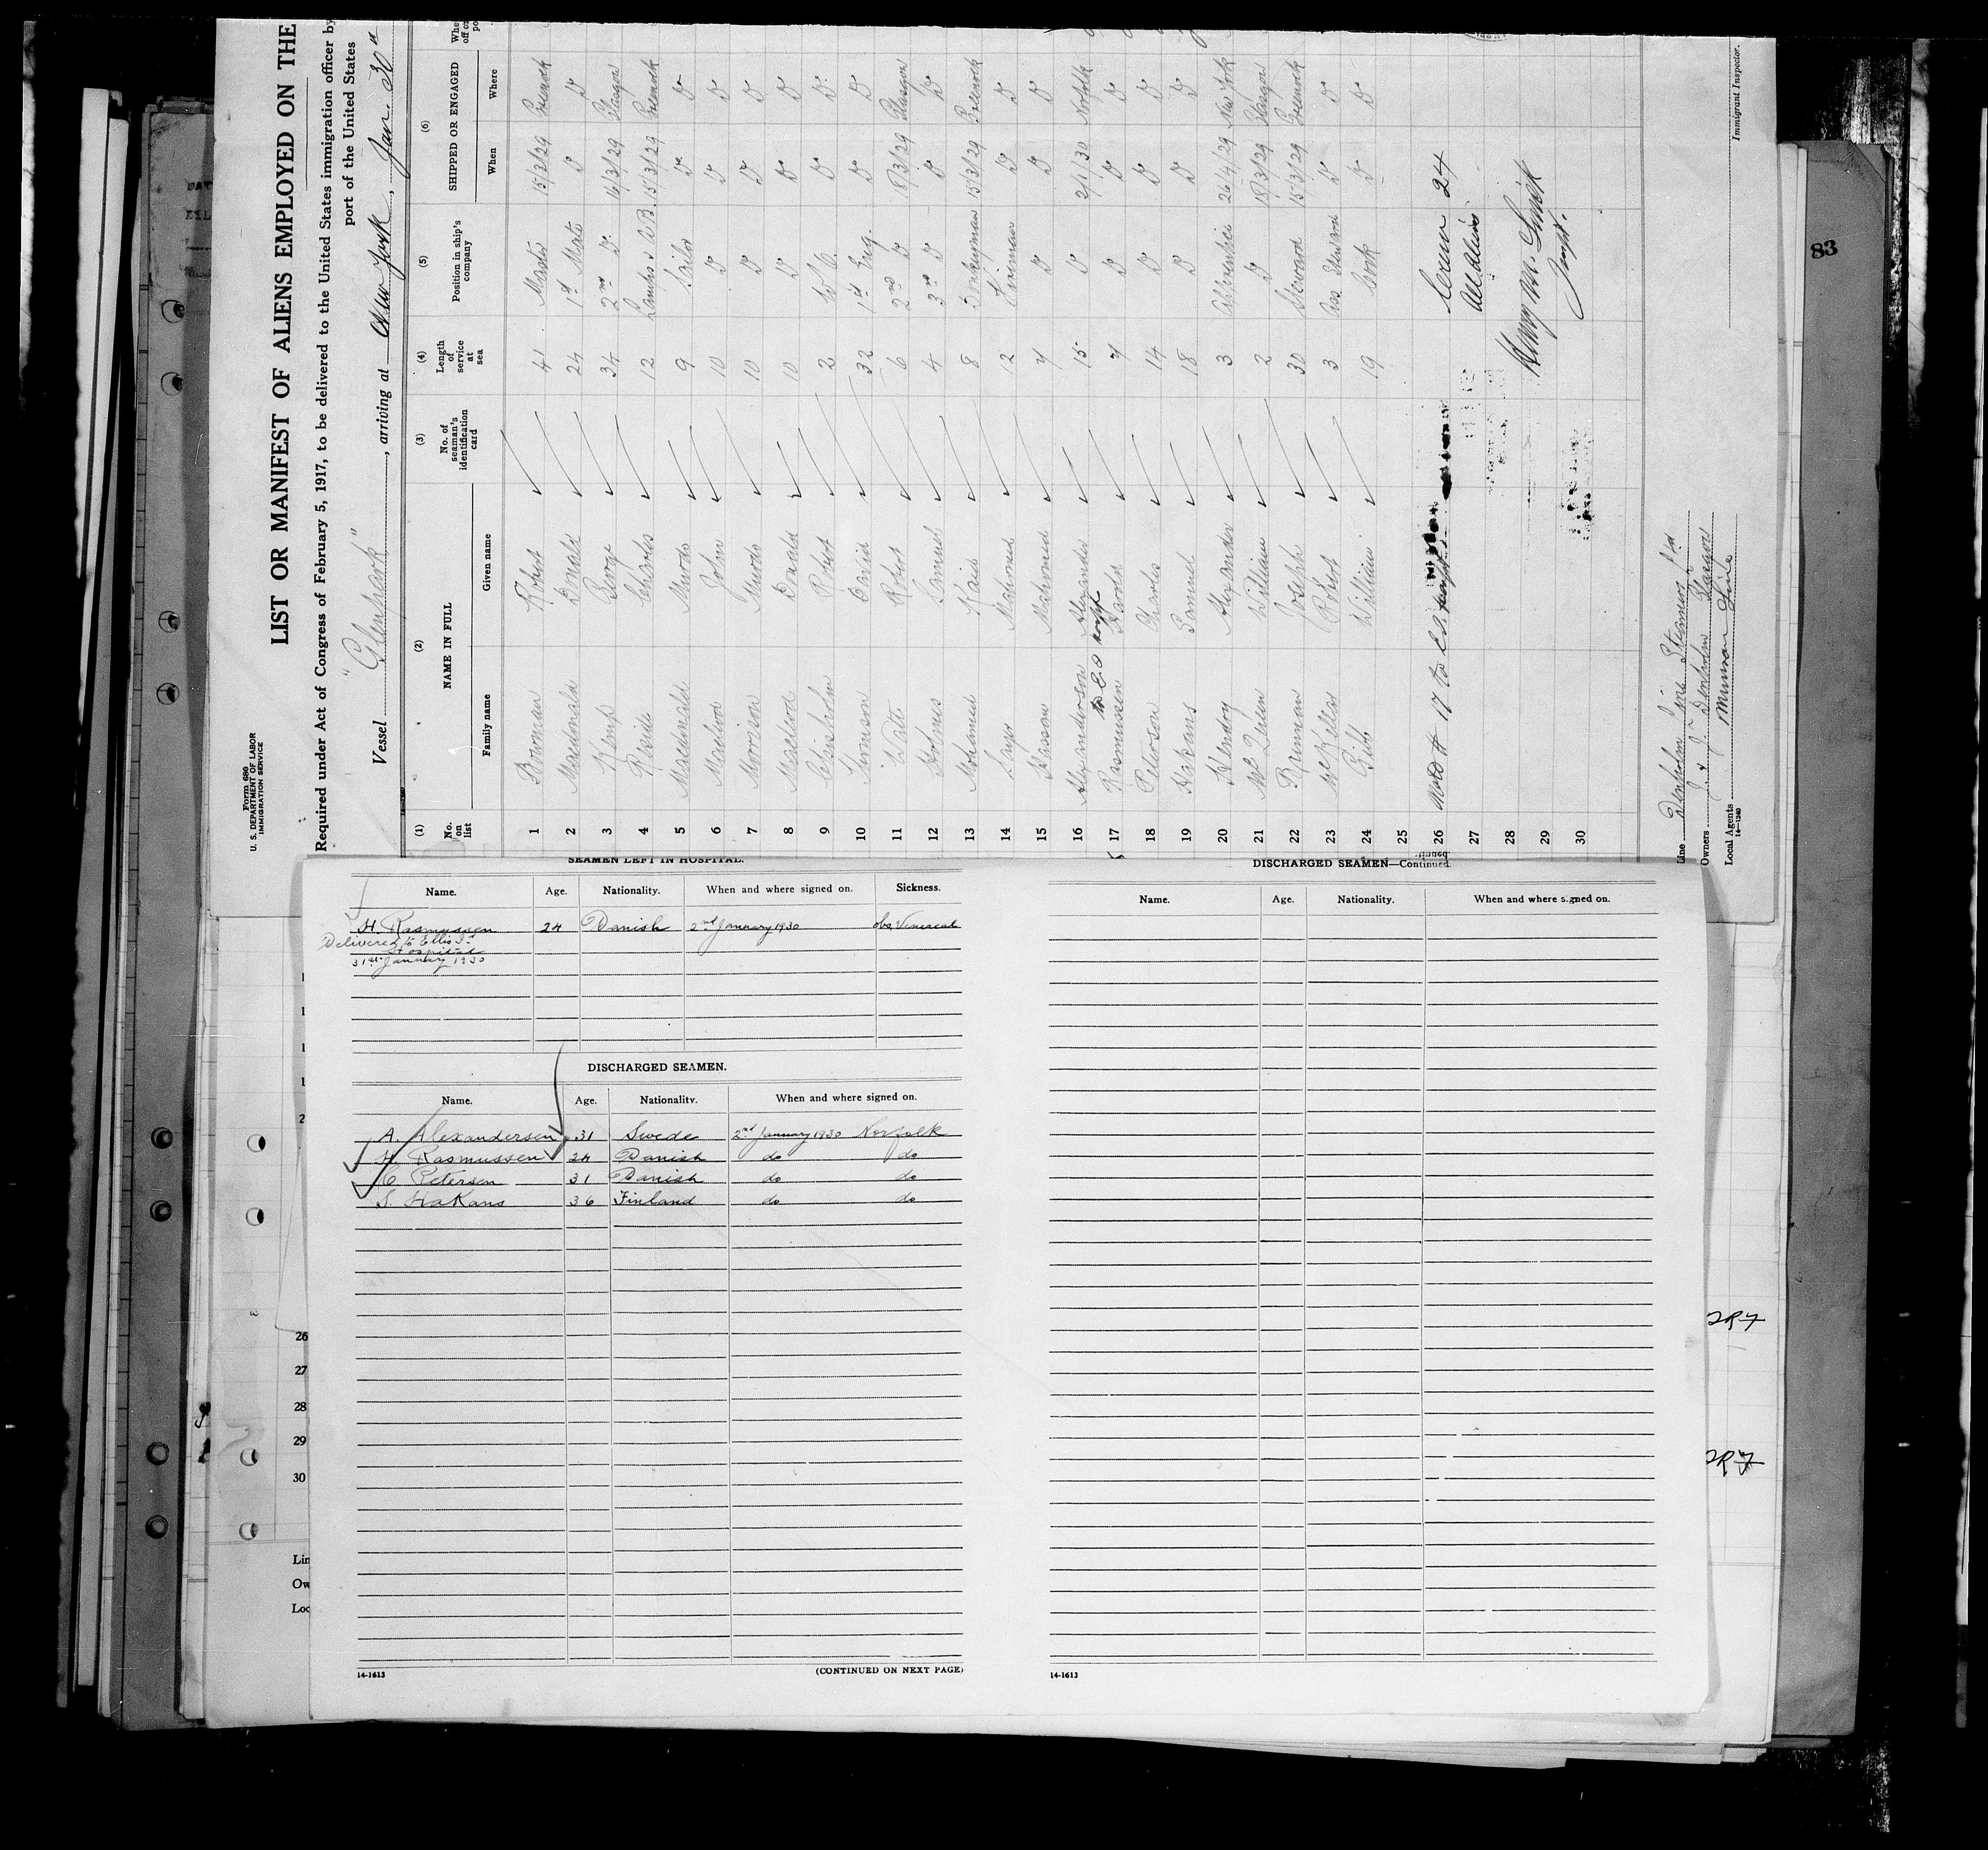 Form 680
U. S. DEPARTMENT OF LABOR
IMMIGRATION SERVICE
LIST OR MANIFEST OF ALIENS EMPLOYED ON THE
Required under Act of Congress of February 5, 1917, to be delivered to the United States immigration officer by
port of the United States
Vessel "Glenshark", arriving at New York, Jan. 30th
(1) (2) (3) (4) (5) (6)
No. on list NAME IN FULL No. of seaman's identification card Length of service at sea Position in ship's company SHIPPED OR ENGAGED
Family name Given name When Where
1 Bowman Robert 41 Master 15/3/29 Greenock
2 Macdonald Donald 24 1st Mate D D
3 Kemp George 34 2nd D. 16/3/29 Glasgow
4 Charles 12 A.B. 15/3/29 Greenock
5 Macdonald Murdo 9 Sailor D D
6 Macleod John 10 D D D
7 Morrison Murdo 10 D D D
8 Macleod Donald 10 D D D
9 Chisholm Robert 2 D D
10 Thomson David 32 1st Eng. D D
11 Watt Robert 6 2nd D 18/3/29 Glasgow
12 Holmes Samuel 4 3rd D D D
13 Mohamed Kaid 8 Donkeyman 15/3/29 Greenock
14 Mahomed 12 Fireman D D
15 Hassan Mahomed 7 D D D
16 Alexanderson Alexander 15 D 2/1/30 Norfolk
17 Rasmussen Harold 7 D D D
18 Peterson Charles 14 D D D
19 Hakans Samuel 18 D D D
20 Hendry Alexander 3 Apprentice 26/4/29 New York
21 McQueen William 2 D 18/3/29 Glasgow
22 Brennan Joseph 30 Steward 15/3/29 Greenock
23 McKellar Robert 3 Ass Steward D D
24 Gibb William 19 Cook D D
25
26 Crew 24
27 All Aliens
28
29
30
Line Denholm Line Steamers Ltd
Owners J. & J. Denholm Glasgow
Local Agents Munson Line
14-1240
Immigrant Inspector.
83
SEAMEN LEFT IN HOSPITAL.
Name. Age. Nationality. When and where signed on. Sickness.
H. Rasmussen 24 Danish 2nd January 1930 obs. Venereal
Delivered to Ellis Isd
Hospital
31st January 1930
DISCHARGED SEAMEN.
Name. Age. Nationality. When and where signed on.
A. Alexandersen 31 Swede 2nd January 1930 Norfolk
H. Rasmussen 24 Danish do do
C Petersen 31 Danish do do
S. Hakans 36 Finland do do
14-1613
(CONTINUED ON NEXT PAGE)
DISCHARGED SEAMEN—Continued.
Name. Age. Nationality. When and where signed on.
14-1613
26
27
28
29
30
Lin
Ow
Loc